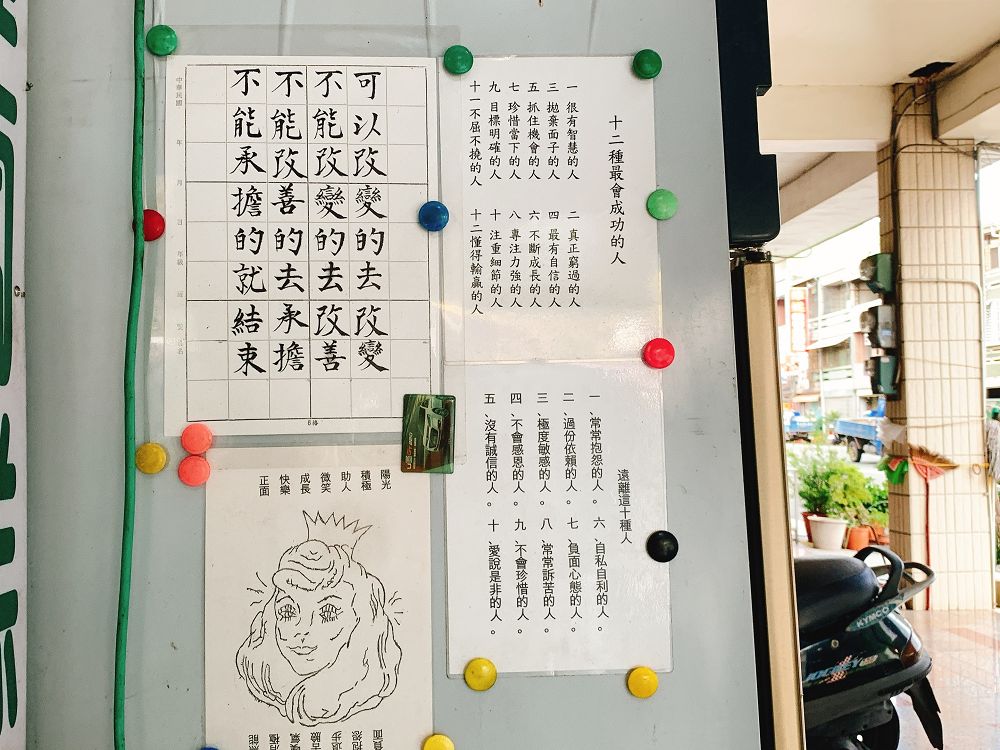 中華民國 年 月 日 年級 班 姓名
可以改變的去改變
不能改變的去改善
不能改善的去承擔
不能承擔的就結束
十二種最會成功的人
一 很有智慧的人 二 真正窮過的人
三 拋棄面子的人 四 最有自信的人
五 抓住機會的人 六 不斷成長的人
七 珍惜當下的人 八 專注力強的人
九 目標明確的人 十 注重細節的人
十一不屈不撓的人 十二懂得輸贏的人
遠離這十種人
一、常常抱怨的人。 六、自私自利的人。
二、過份依賴的人。 七、負面心態的人。
三、極度敏感的人。 八、常常訴苦的人。
四、不會感恩的人。 九、不會珍惜的人。
五、沒有誠信的人。 十、愛說是非的人。
陽光
積極
助人
微笑
成長
快樂
正面
KYMCO
JOCKEY